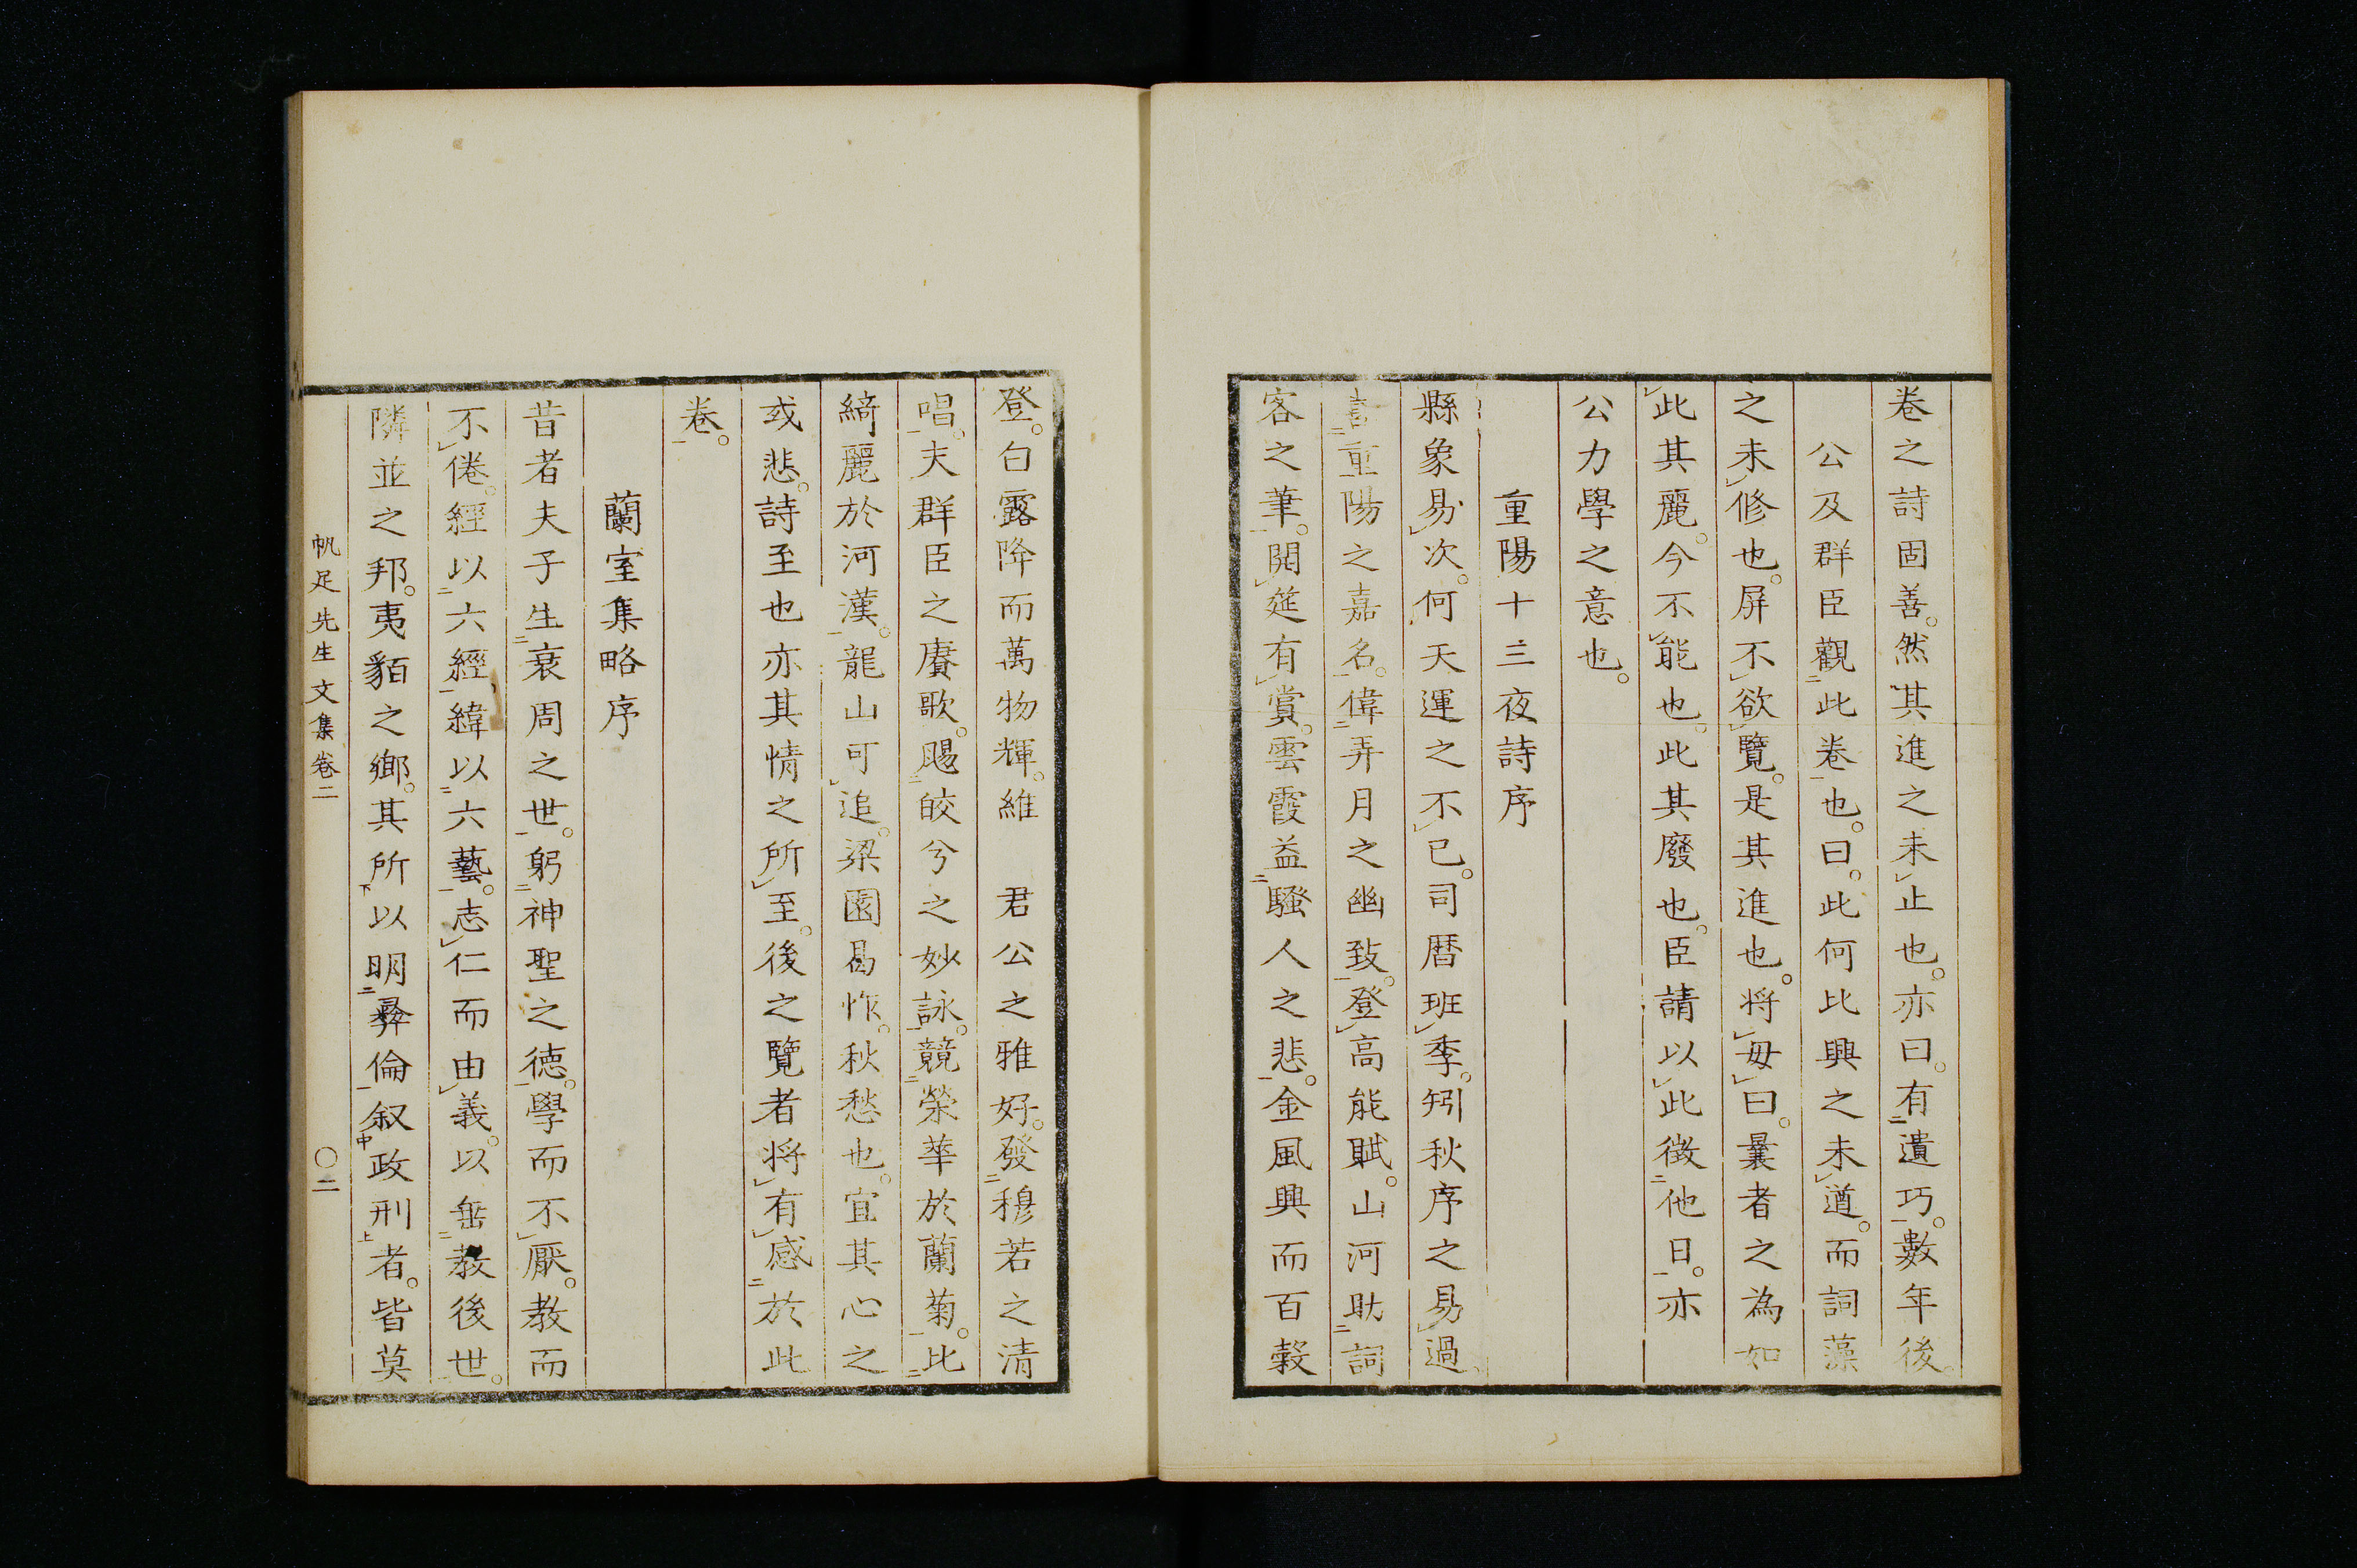 卷之詩固善。然其進之未レ止也。亦曰。有二遺巧一。數年後。
公及群臣觀二此卷一也。曰。此何比興之未レ遒。而詞藻
之未レ修也。屏不レ欲レ覽。是其進也。將レ毋レ曰。曩者之為如
レ此其麗。今不レ能也。此其廢也。臣請以レ此徵二他日一。亦
公力學之意也。
重陽十三夜詩序
縣象易レ次。何天運之不レ已。司曆班レ季。矧秋序之易レ過。
喜二重陽之嘉名一。偉二弄月之幽致一。登レ高能賦。山河助二詞
客之筆一。開レ筵有レ賞。雲霞益二騷人之悲一。金風興而百穀
登。白露降而萬物輝。維　君公之雅好。發二穆若之清
唱一。夫群臣之賡歌。颺二皎兮之妙詠一。競二榮華於蘭菊一。比二
綺麗於河漢一。龍山可レ追。梁園曷怍。秋愁也。宜其心之
或悲。詩至也亦其情之所レ至。後之覽者將レ有レ感二於此
卷一。
蘭室集略序
昔者夫子生二衰周之世一。躬二神聖之德一。學而不レ厭。教而
不レ倦。經以二六經一、緯以二六藝一。志レ仁而由レ義。以垂二教後世一。
隣並之邦。夷貊之鄉。其所下以明二彝倫一叙中政刑上者。皆莫
帆足先生文集卷二　〇二